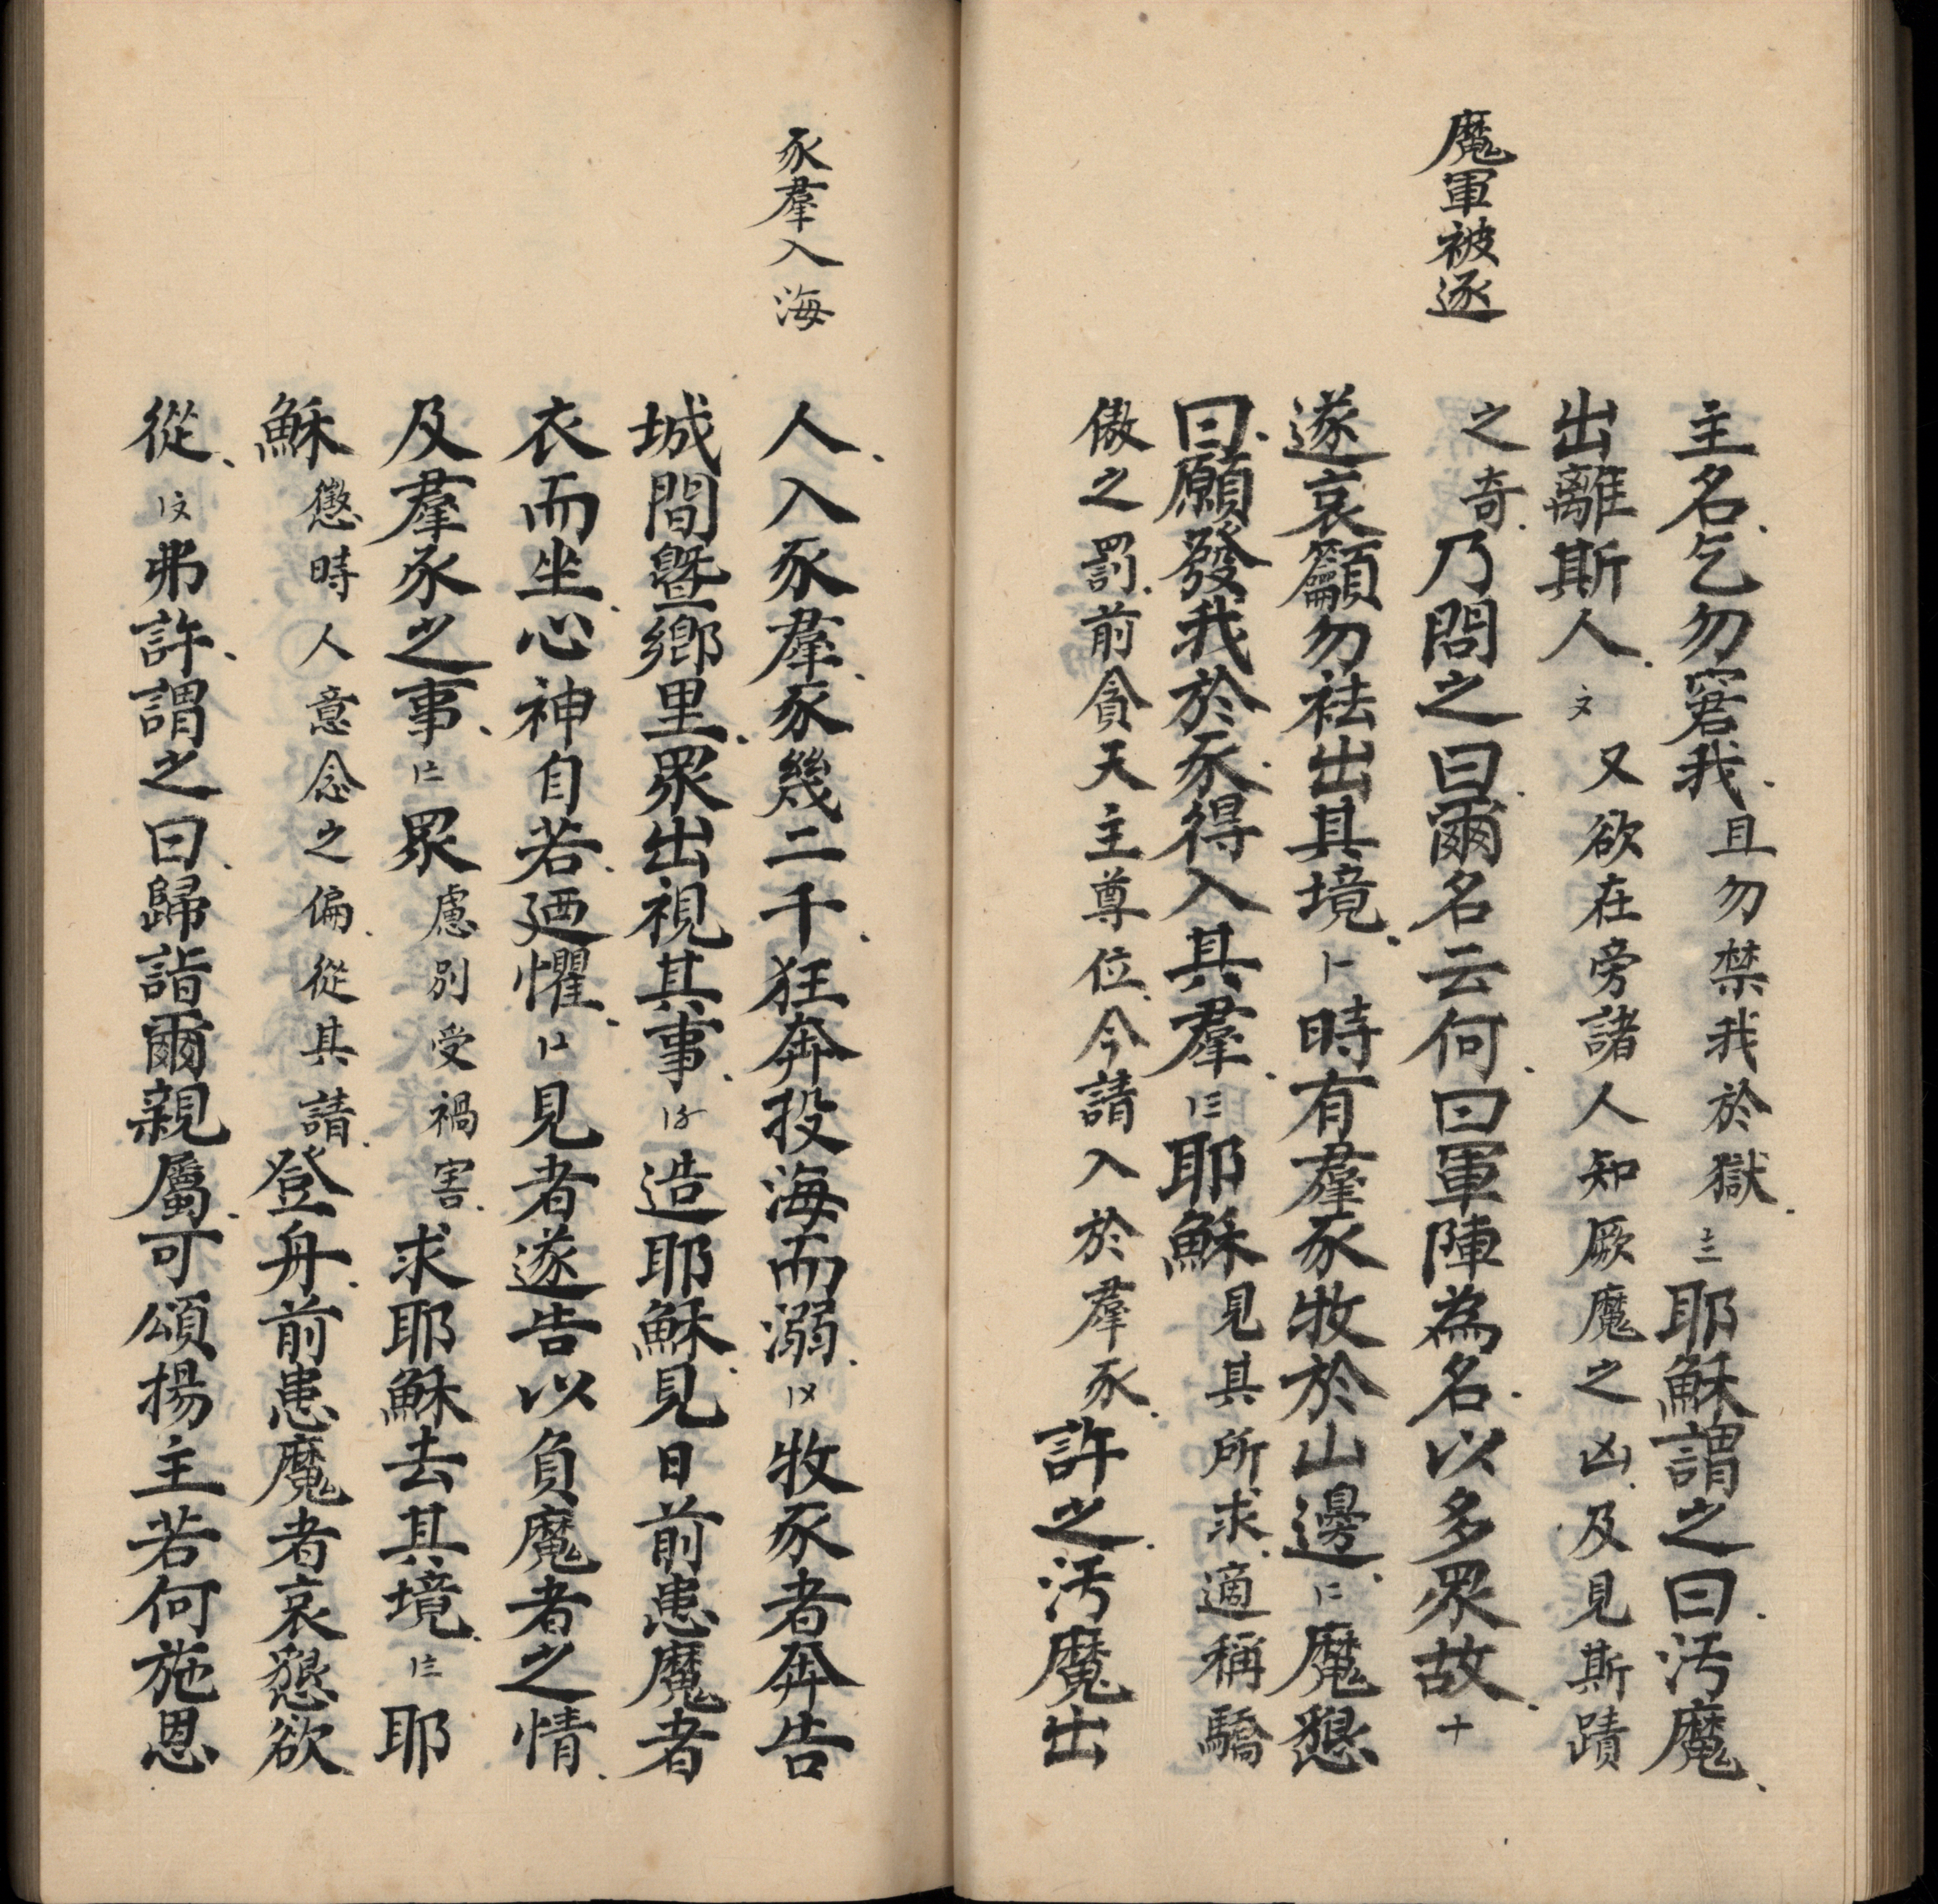 魔軍被逐
主名、乞勿窘我、且勿禁我於獄、〨耶穌謂之曰、汚魔、
出離斯人、〩又欲在旁諸人知厥魔之凶、及見斯蹟
之奇、乃問之曰、爾名云何、曰軍陣為名、以多眾故、十
遂哀籲勿祛出其境、〡一時有羣豕牧於山邊、〡二魔懇
曰、願發我於豕、得入其羣、〡三耶穌見其所求、適稱驕
傲之罰、前貪天主尊位、今請入於羣豕、許之、汚魔出
豕羣入海
人、入豕羣、豕幾二千、狂奔投海而溺、〡〤牧豕者奔告
城間曁鄉里、眾出視其事、〡〥造耶穌、見日前患魔者
衣而坐、心神自若、廼懼、〡〦見者遂告以負魔者之情、
及羣豕之事、〡〧眾慮別受禍害、求耶穌去其境、〡〨耶
穌懲時人意念之偏、從其請、登舟、前患魔者哀懇欲
從、〡〩弗許、謂之曰、歸詣爾親屬、可頌揚主若何施恩